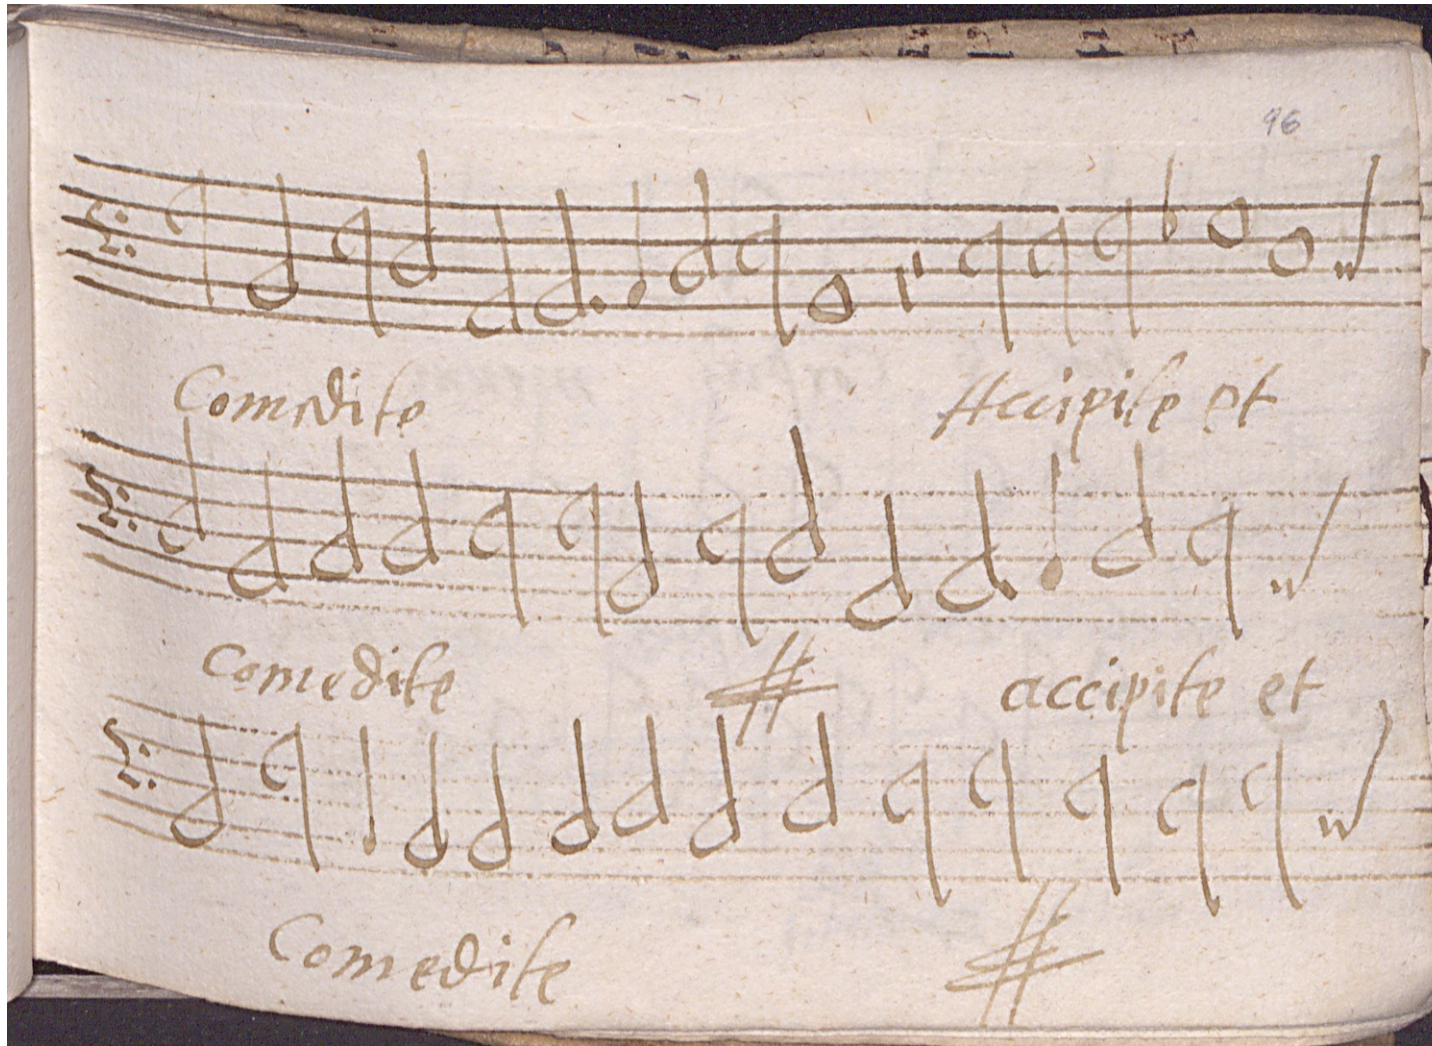 96
Comedite Accipite et
Comedite accipite et
Comedite